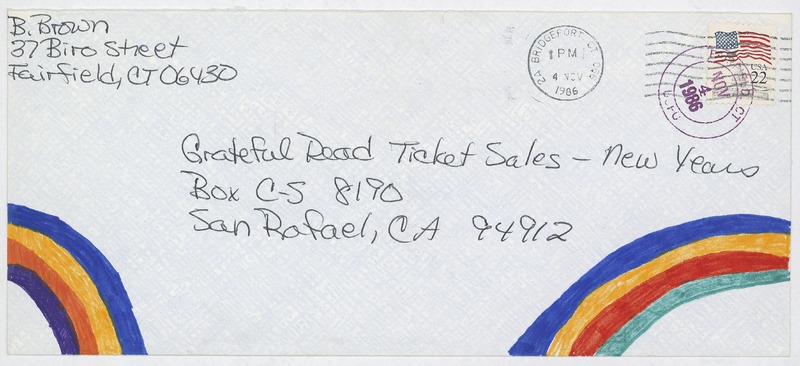 B. Brown
37 Biro Street
Fairfield, CT 06430
BRIDGEFORT CT
1 PM
4 NOV
1986
USA
22
CT
4
NOV
1986
Grateful Dead Ticket Sales - New Years
Box C-S 8190
San Rafael, CA 94912